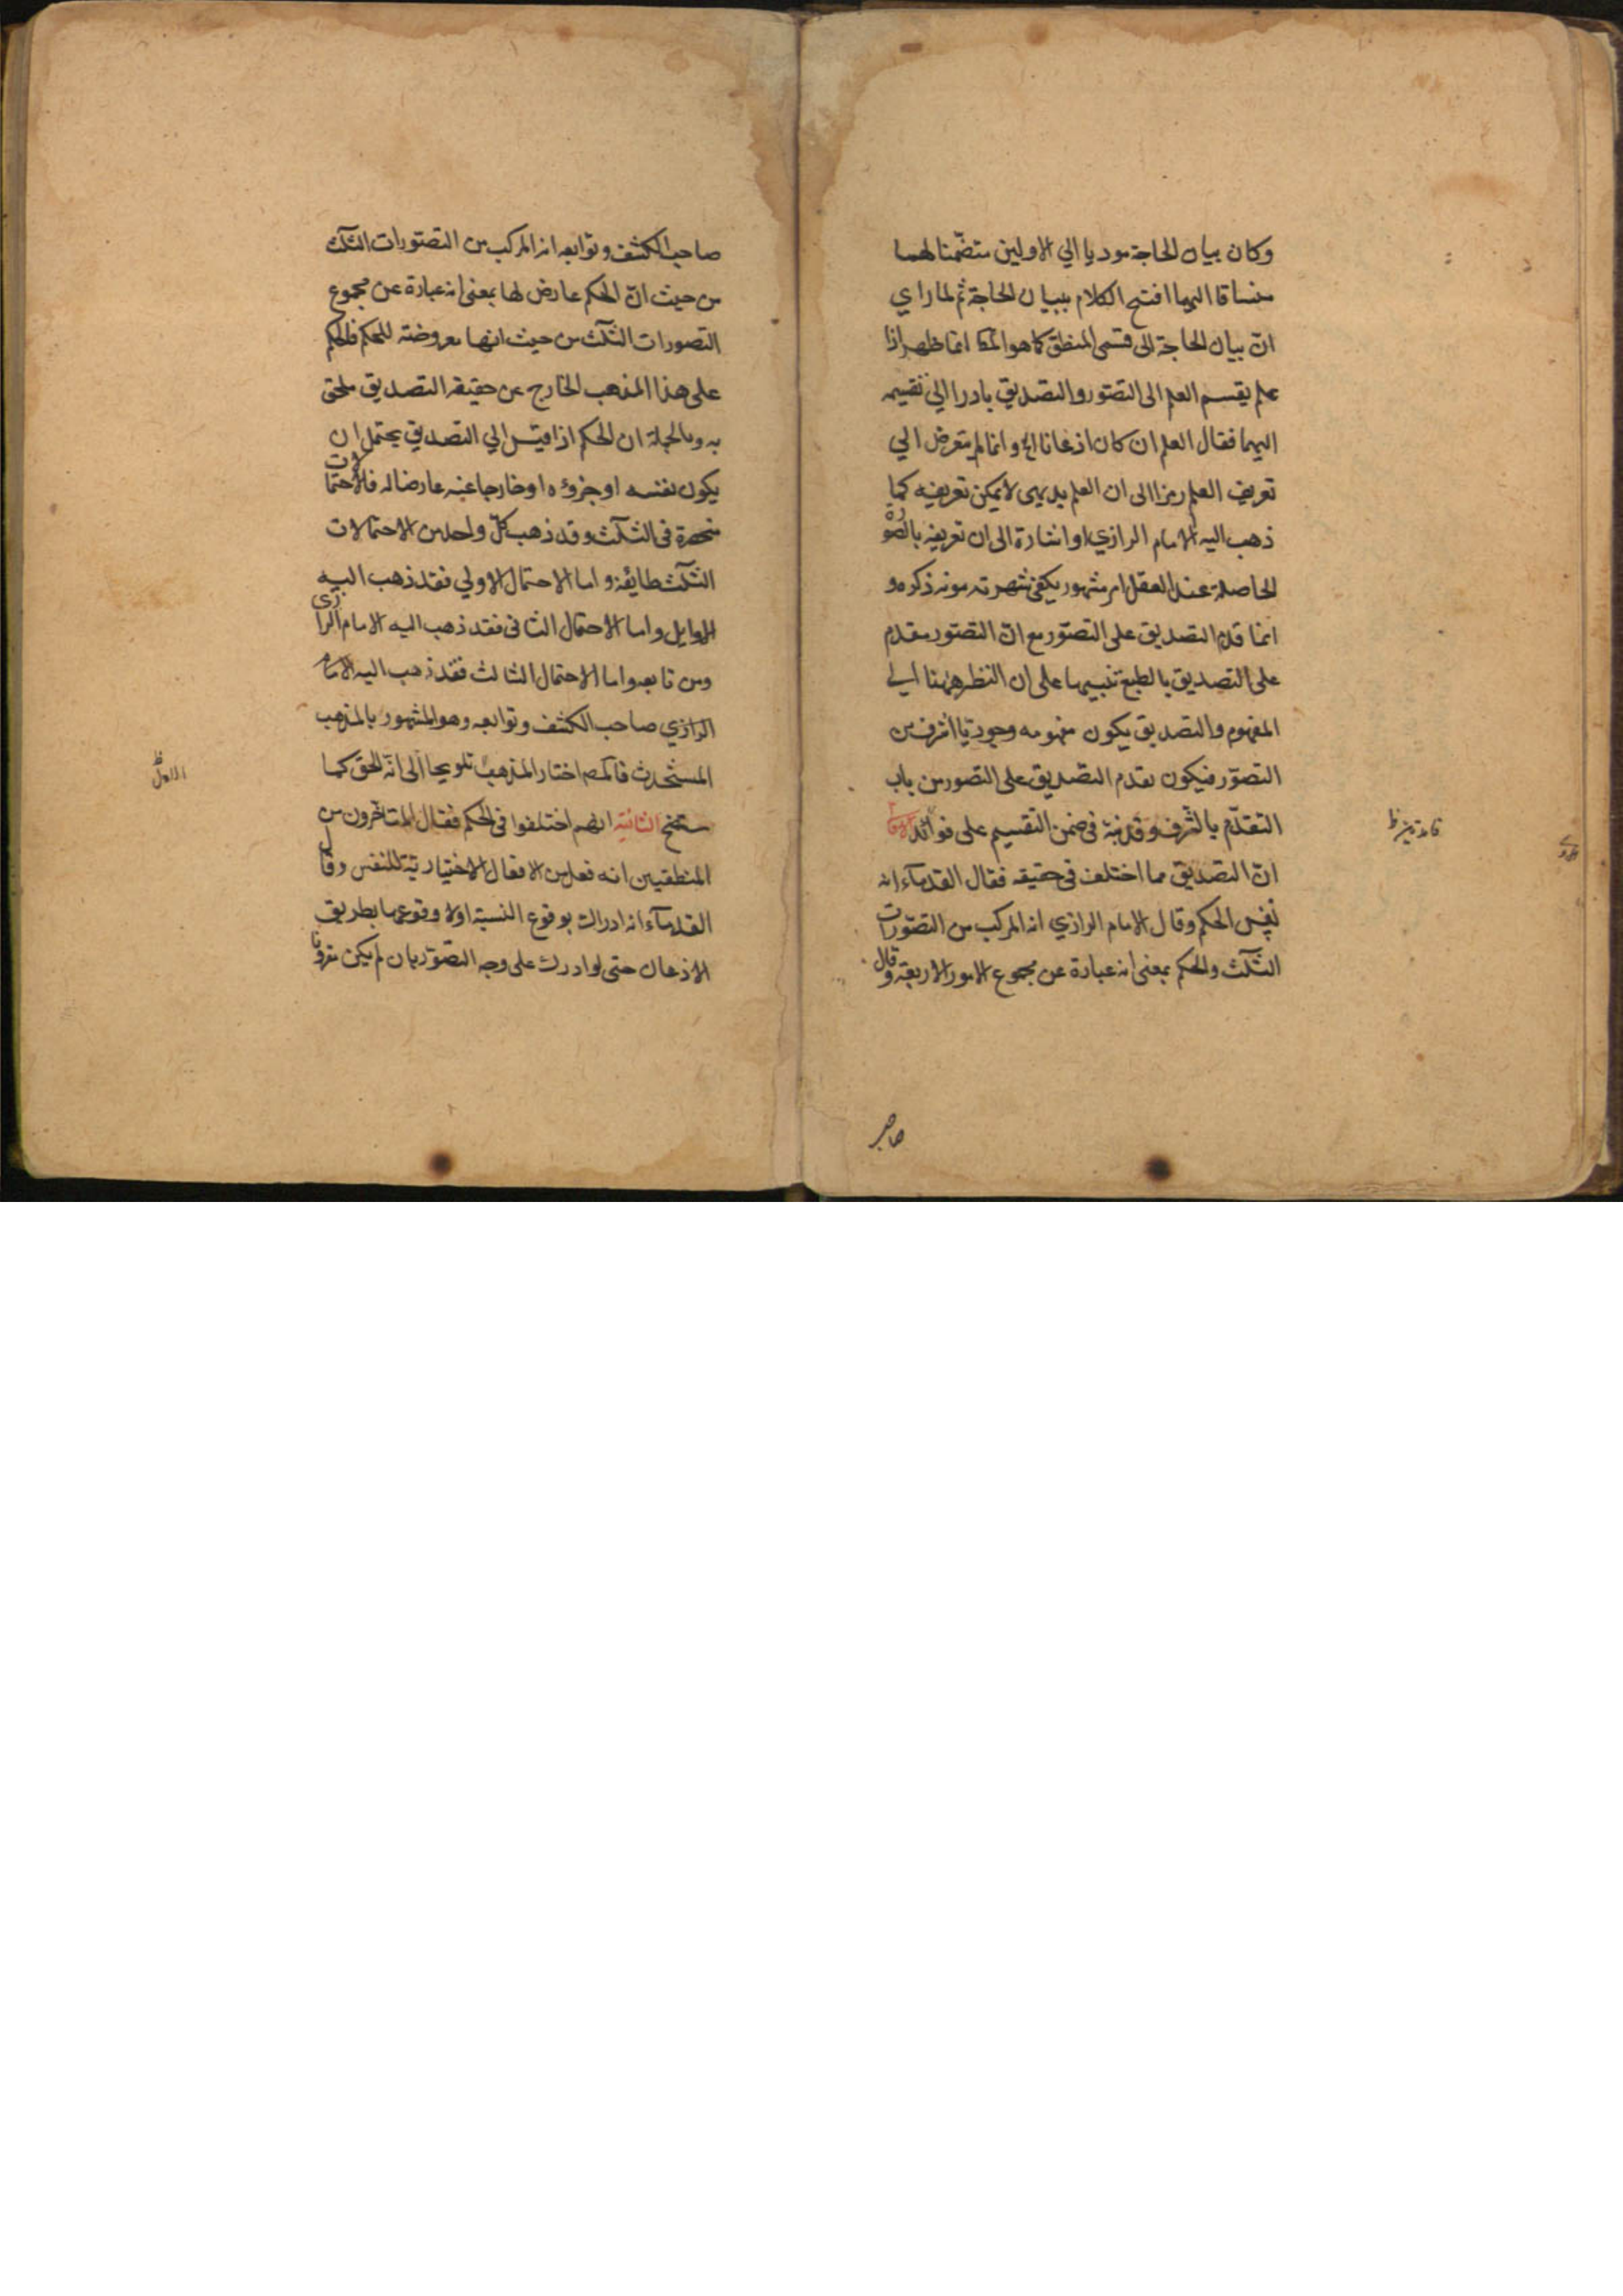 وكان بيان الحاجة موديا الي الاولين متضمّنا لهما
منساقا اليهما افتتح الكلام ببيان الحاجة ثم لما راي
انّ بيان الحاجة الى قسمى المنطق كما هو انما ظهر اذا
علم يقسم العلم الى التصّور والتصديق بادرا الي تقسيمه
اليهما فقال العلم ان كان اذعانا الخ وانما لم يتعرض الي
تعريف العلم رمزا الى ان العلم بديهى لا يمكن تعريفه كما
ذهب اليه الامام الرازي او اشارة الى ان تعريفه بالصورة
الحاصلة عند العقل امر مشهور يكفى شهرته مونه ذكره و
انما قدم التصديق على التصّور مع انّ التصّور مقدم
على التصديق بالطبع تنبيها على ان النظر ههنا الي
المفهوم والتصديق يكون مفهومه وجوديّا اشرف من
التصوّر فيكون تقدم التصديق على التصور من باب
التقدّم بالشرف وقد نبّه فى ضمن التقسيم على فوائد
انّ التصديق مما اختلف فى حقيقه فقال القدمآء انه
نفس الحكم وقال الامام الرازي انه المركب من التصوّرات
الثلث والحكم بمعنى انه عبارة عن مجموع الامور الاربعة وقال
صاحب
صاحب الكشف وتوابعه انه المركب من التصّورات الثلث
من حيث انّ الحكم عارض لها بمعنى انه عبارة عن مجموع
التصورات الثلث من حيث انها معروضة للحكم فالحكم
على هذا المذهب الخارج عن حقيقه التصديق ملحق
به وبالجملة ان الحكم اذا قيس الي التصديق يحتمل ان
يكون نفسه او جزؤه او خارجا عنه عارضا له فالاحتمالات
منحصرة فى الثلث وقد ذهب كلّ واحد من الاحتمالات
الثلث طايفة واما الاحتمال الاولي فقد ذهب اليه
الاوايل واما الاحتمال الثانى فقد ذهب اليه الامام الرازى
ومن تابعه واما الاحتمال الثالث فقد ذهب اليه الامام
الرازي صاحب الكشف وتوابعه وهو المشهور بالمذهب
المستحدث فالمصه اختار المذهب تلويحا الى انّه الحق كما
ستضح الثانية انهم اختلفوا فى الحكم فقال المتاخرون من
المنطقيين انه فعل من الافعال الاختياريّة للنفس وقال
القدمآء انه ادراك بوقوع النسبة اولا وقوعها بطريق
الاذعان حتى لو ادرك على وجه التصوّر بان لم يكن مقرونا
الاول